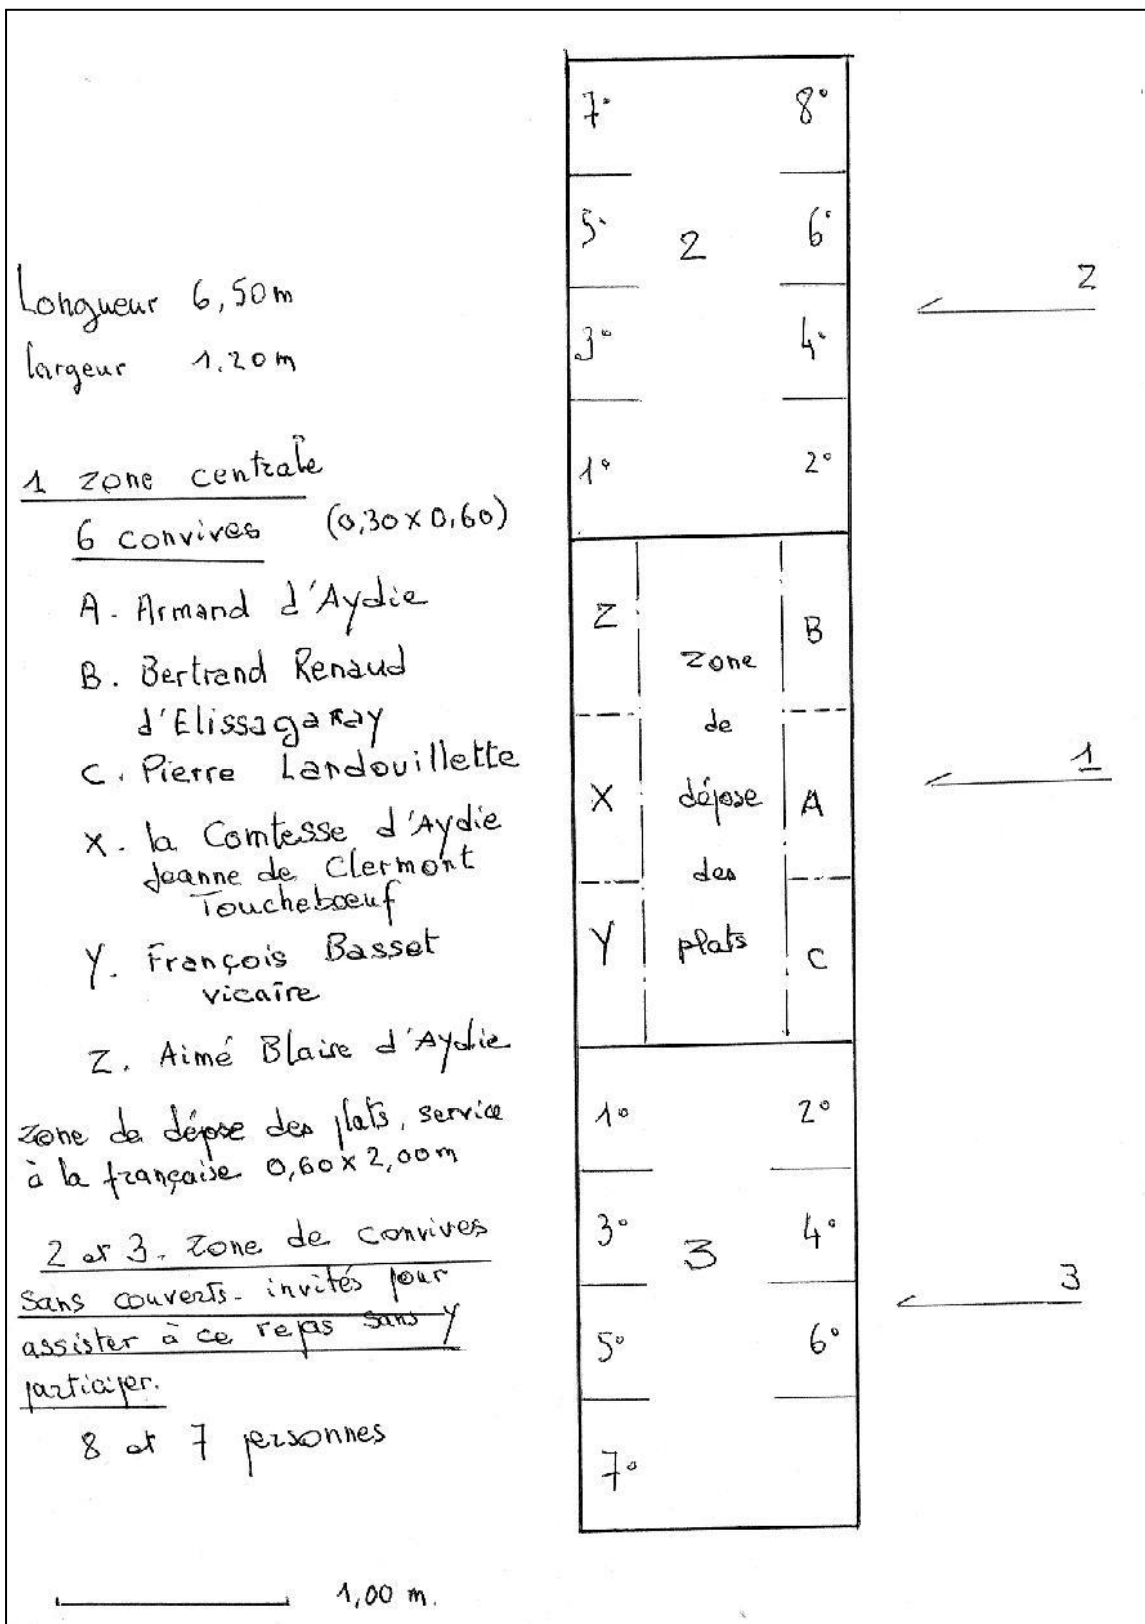 Longueur 6,50m
largeur 1.20m
1 zone centrale
6 convives (0,30 x 0,60)
A. Armand d'Aydie
B. Bertrand Renaud
d'Elissagaray
C. Pierre Landouillette
X. la Comtesse d'Aydie
Jeanne de Clermont
Toucheboeuf
Y. François Basset
vicaire
Z. Aimé Blaise d'Aydie
zone de dépose des plats, service
à la française 0,60 x 2,00m
2 et 3. zone de convives
sans couverts. invités pour
assister à ce repas sans y
participer.
8 et 7 personnes
1,00 m.
7° 8°
5° 2 6°
3° 4°
1° 2°
Z B
zone
de
X dépose A
des
Y plats C
1° 2°
3° 3 4°
5° 6°
7°
2
1
3